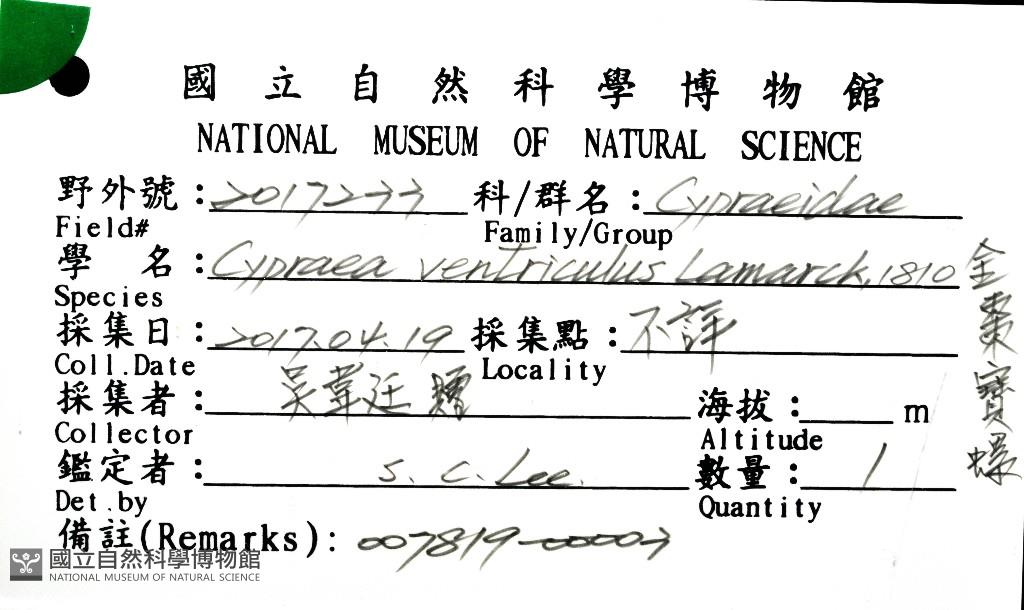 國立自然科學博物館
NATIONAL MUSEUM OF NATURAL SCIENCE
野外號：2017233 科/群名：Cypraeidae
Field# Family/Group
學 名：Cypraea ventriculus Lamarck, 1810
Species
金棗寶螺
採集日：2017.04.19 採集點：不詳
Coll.Date Locality
採集者：吳韋廷 贈 海拔： m
Collector Altitude
鑑定者：S. C. Lee. 數量：1
Det.by Quantity
備註(Remarks)：007819-00003
國立自然科學博物館
NATIONAL MUSEUM OF NATURAL SCIENCE